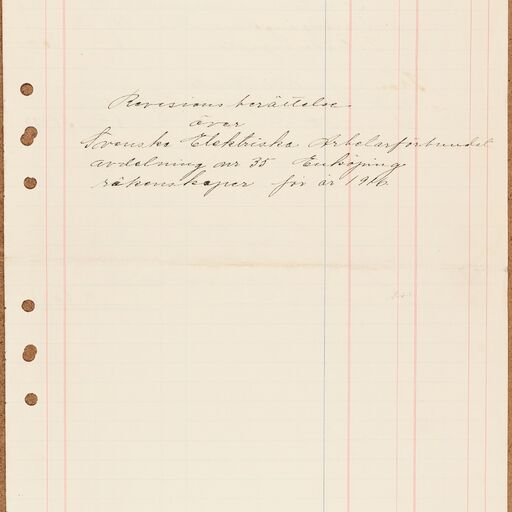 Revisionsberättelse
över
Svenska Elektriska Arbetarförbundet
avdelning nr 35 Enköping
räkenskaper för år